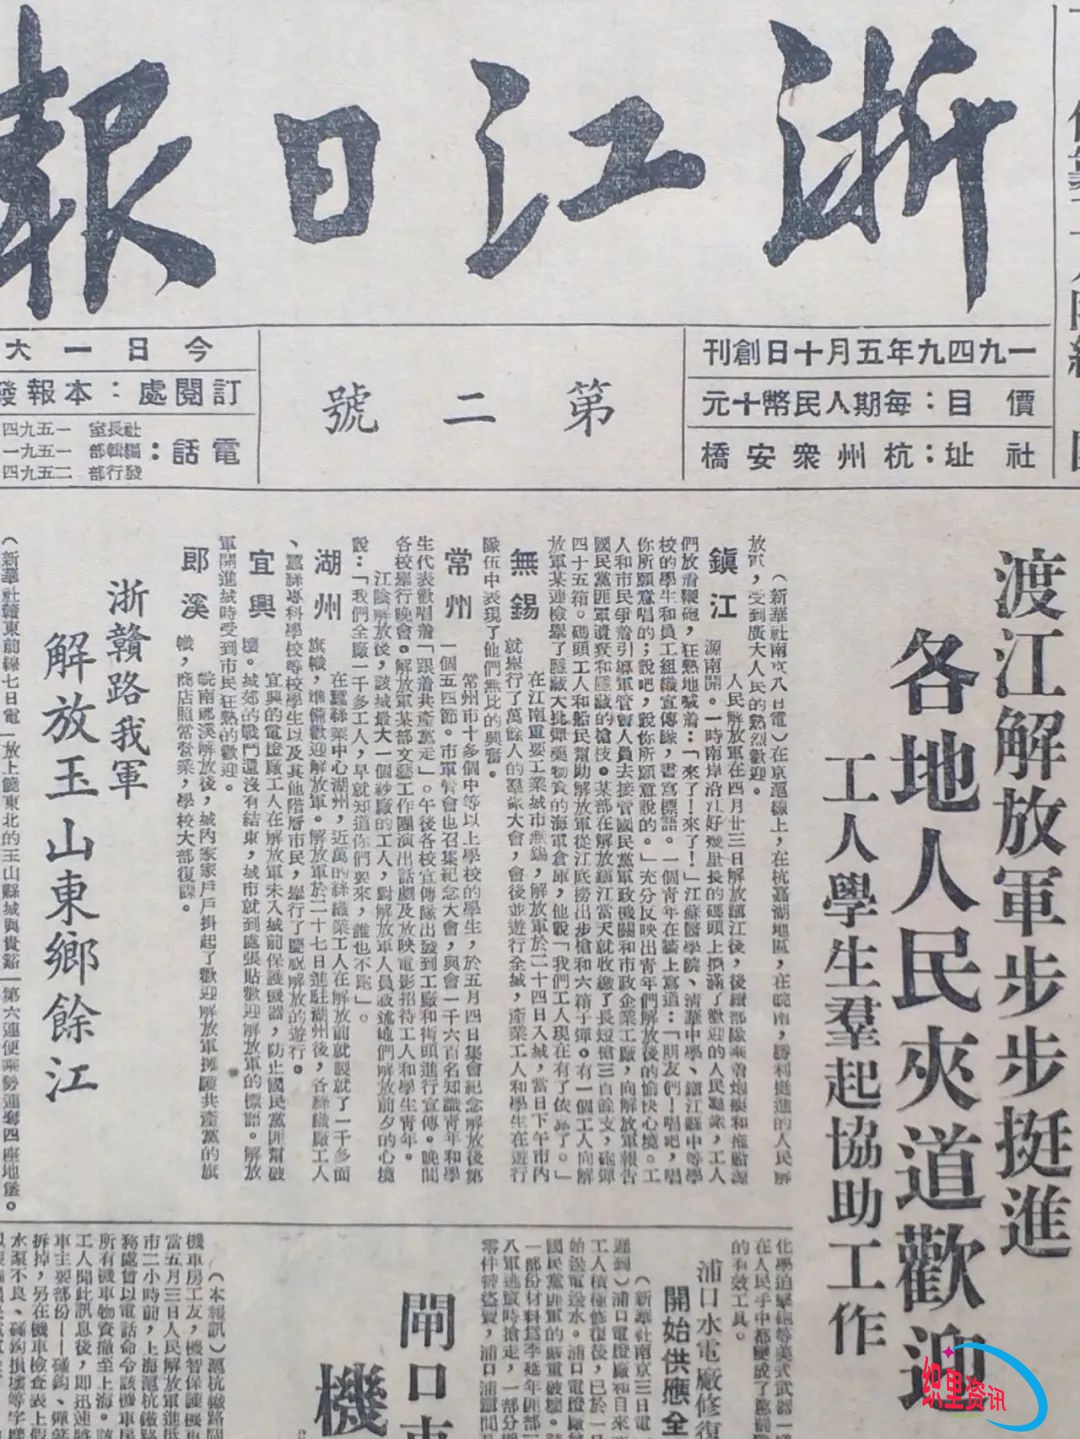 浙江日報
一九四九年五月十日創刊
價目：每期人民幣十元
社址：杭州衆安橋
第二號
今日一大
訂閱處：本報發
電話：
社長室 一五九四
編輯部 一五九一
發行部 二五九四
渡江解放軍步步挺進
各地人民夾道歡迎
工人學生羣起協助工作
（新華社南京八日電）在京滬線上，在杭嘉湖地區，在皖南，勝利挺進的人民解
放軍，受到廣大人民的熱烈歡迎。
鎮江
人民解放軍在四月廿三日解放鎮江後，後續部隊乘着炮艇和拖船源
源南開。一時南岸沿江好幾里長的碼頭上擠滿了歡迎的人民羣衆，工人
們放着鞭砲，狂熱地喊着：「來了！來了！」江蘇醫學院、清華中學、鎮江縣中等學
校的學生和員工組織宣傳隊，書寫標語。一個青年在牆上寫道：「朋友們！唱吧，唱
你所願意唱的；說吧，說你所願意說的。」充分反映出青年們解放後的愉快心境。工
人和市民爭着引導軍管會人員去接管國民黨軍政機關和市政企業工廠，向解放軍報告
國民黨匪軍遺棄和隱藏的槍枝。某部在解放鎮江當天就收繳了長短槍三百餘支，砲彈
四十五箱。碼頭工人和船民幫助解放軍從江底撈出步槍和六箱子彈。有一個工人向解
放軍某連檢舉了隱藏大批彈藥物資的海軍倉庫，他說「我們工人現在有了依靠了。」
無錫
在江南重要工業城市無錫，解放軍於二十四日入城，當日下午市內
就舉行了萬餘人的羣衆大會，會後並遊行全城，產業工人和學生在遊行
隊伍中表現了他們無比的興奮。
常州
常州市十多個中等以上學校的學生，於五月四日集會紀念解放後第
一個五四節。市軍管會也召集紀念大會，與會一千六百名知識青年和學
生代表歡唱着「跟着共產黨走」。午後各校宣傳隊出發到工廠和街頭進行宣傳。晚間
各校舉行晚會。解放軍某部文藝工作團演出話劇及放映電影招待工人和學生青年。
江陰解放後，該城最大一個紗廠的工人，對解放軍人員敍述他們解放前夕的心境
說：「我們全廠一千多工人，早就知道你們要來，誰也不跑」。
湖州
在蠶絲業中心湖州，近萬的絲織業工人在解放前就製就了一千多面
旗幟，準備歡迎解放軍。解放軍於二十七日進駐湖州後，各絲織廠工人
、蠶絲專科學校等校學生以及其他階層市民，舉行了慶祝解放的遊行。
宜興
宜興的電燈廠工人在解放軍未入城前保護機器，防止國民黨匪幫破
壞。城郊的戰鬥還沒有結束，城市就到處張貼歡迎解放軍的標語。解放
軍開進城時受到市民狂熱的歡迎。
郎溪
皖南郎溪解放後，城內家家戶戶掛起了歡迎解放軍擁護共產黨的旗
幟，商店照常營業，學校大部復課。
浙贛路我軍
解放玉山東鄉餘江
（新華社贛東前線七日電）放上饒東北的玉山縣城與貴谿
第六連便乘勢連奪四座地堡。
化學迫擊砲等美式武器一
在人民手中都變成了
的有效工具。
浦口水電廠修復
開始供應全
（新華社南京三日電
遲到）浦口電燈廠和自來
工人積極修復後，已於一
始送電送水。浦口電燈廠
國民黨匪軍的嚴重破壞。
一部份材料爲李延年匪部
八軍逃竄時搶走，一部分
零件被盜賣，浦口浦鎮間
閘口
機
（本報訊）滬杭鐵路
機車房工友，機智保護機車
當五月三日人民解放軍進抵
市二小時前，上海滬杭鐵路
務處曾以電話命令該機車房
所有機車物資撤至上海。該
工人聞此訊息後，即迅速將
車主要部份——碰鈎、彈簧
拆掉，另在機車檢查表上
水泵不良、碰鈎損壞等字
织里资讯